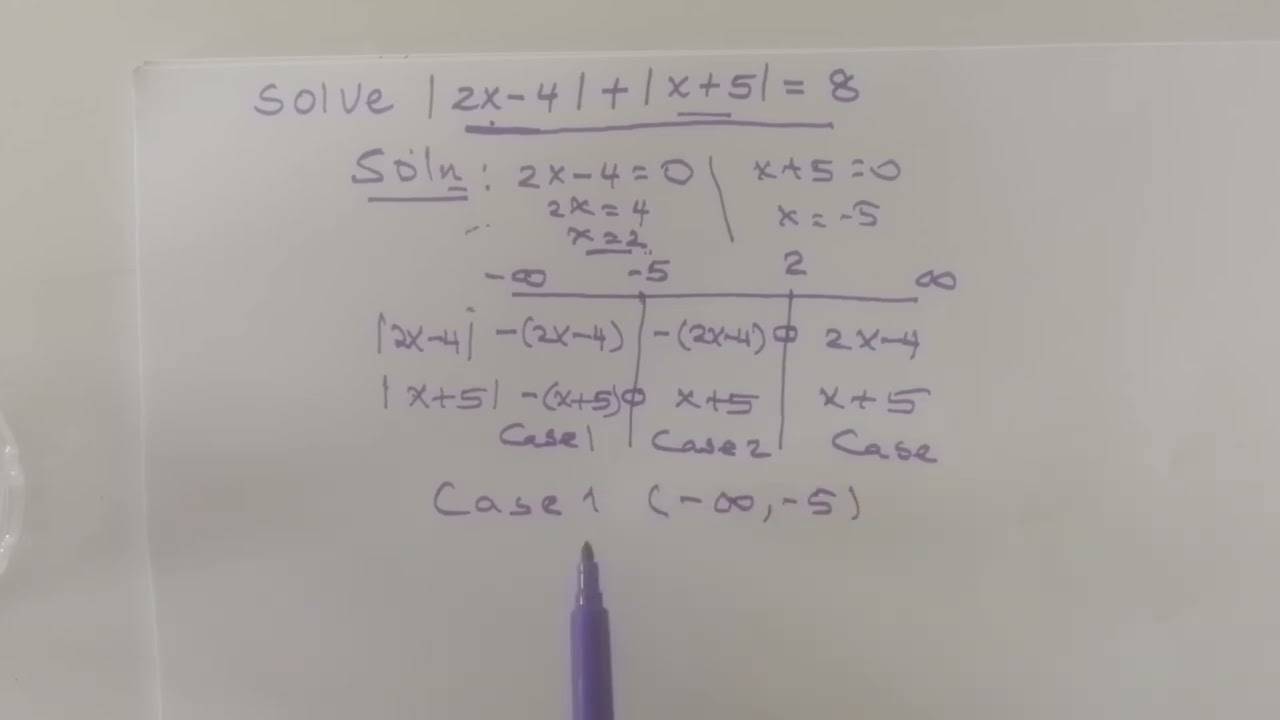 Solve |2x-4|+|x+5|=8
Soln: 2x-4=0 | x+5=0
2x=4 x=-5
x=2
-∞ -5 2 ∞
|2x-4| -(2x-4) -(2x-4) 0 2x-4
|x+5| -(x+5) 0 x+5 x+5
Case1 Case2 Case
Case 1 (-∞,-5)